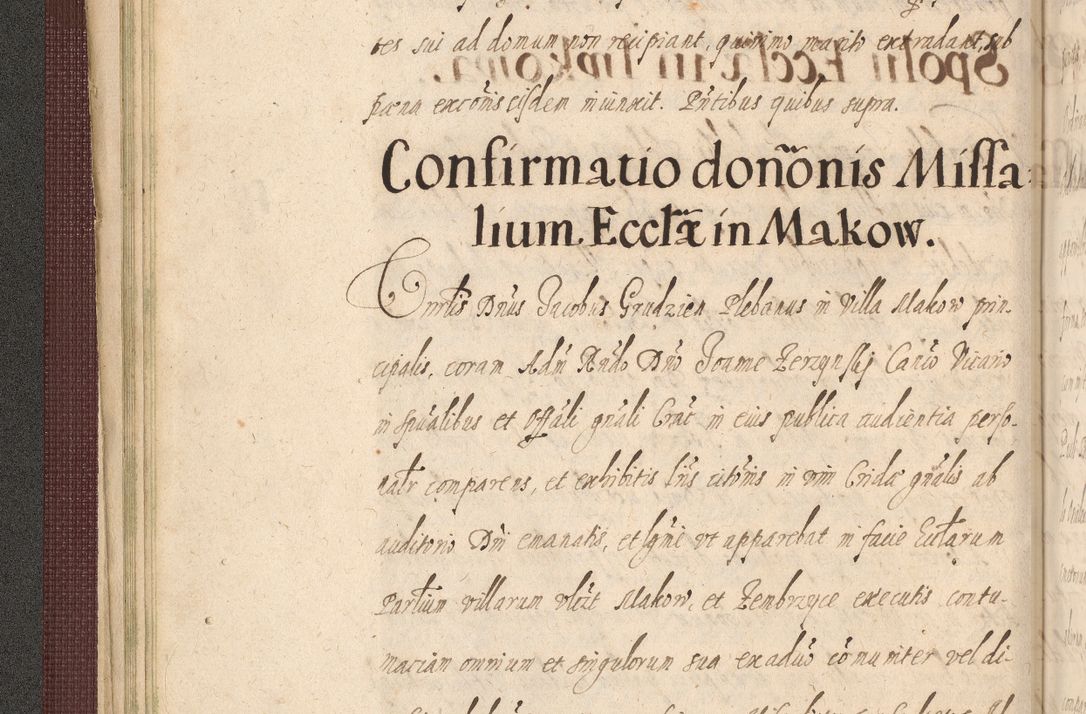 tes sui ad domum non recipiant, quinimo marito extradant, sub
pæna excõnis eisdem iniunxit. Pñtibus quibus supra.
Confirmatio doñonis Missa
lium Ecclæ in Makow.
Dnus Jacobus Grudzien Plebanus in Villa Makow prin-
cipalis, coram Adm Rndo Dno Joanne Zerzynskj Canco Vicario
in spũalibus et Offali gnali Crac in eius publica audientia perso-
natr comparens, et exhibitis lris citõnis in vim Cridæ gnalis ab
auditorio Dni emanatis, et ut apparebat in facie Ecclarum
Parlium villarum vlizt Makow, et Zembrzyce executis contu-
maciam omnium et singulorum sua ex aduo cõmuniter vel di-